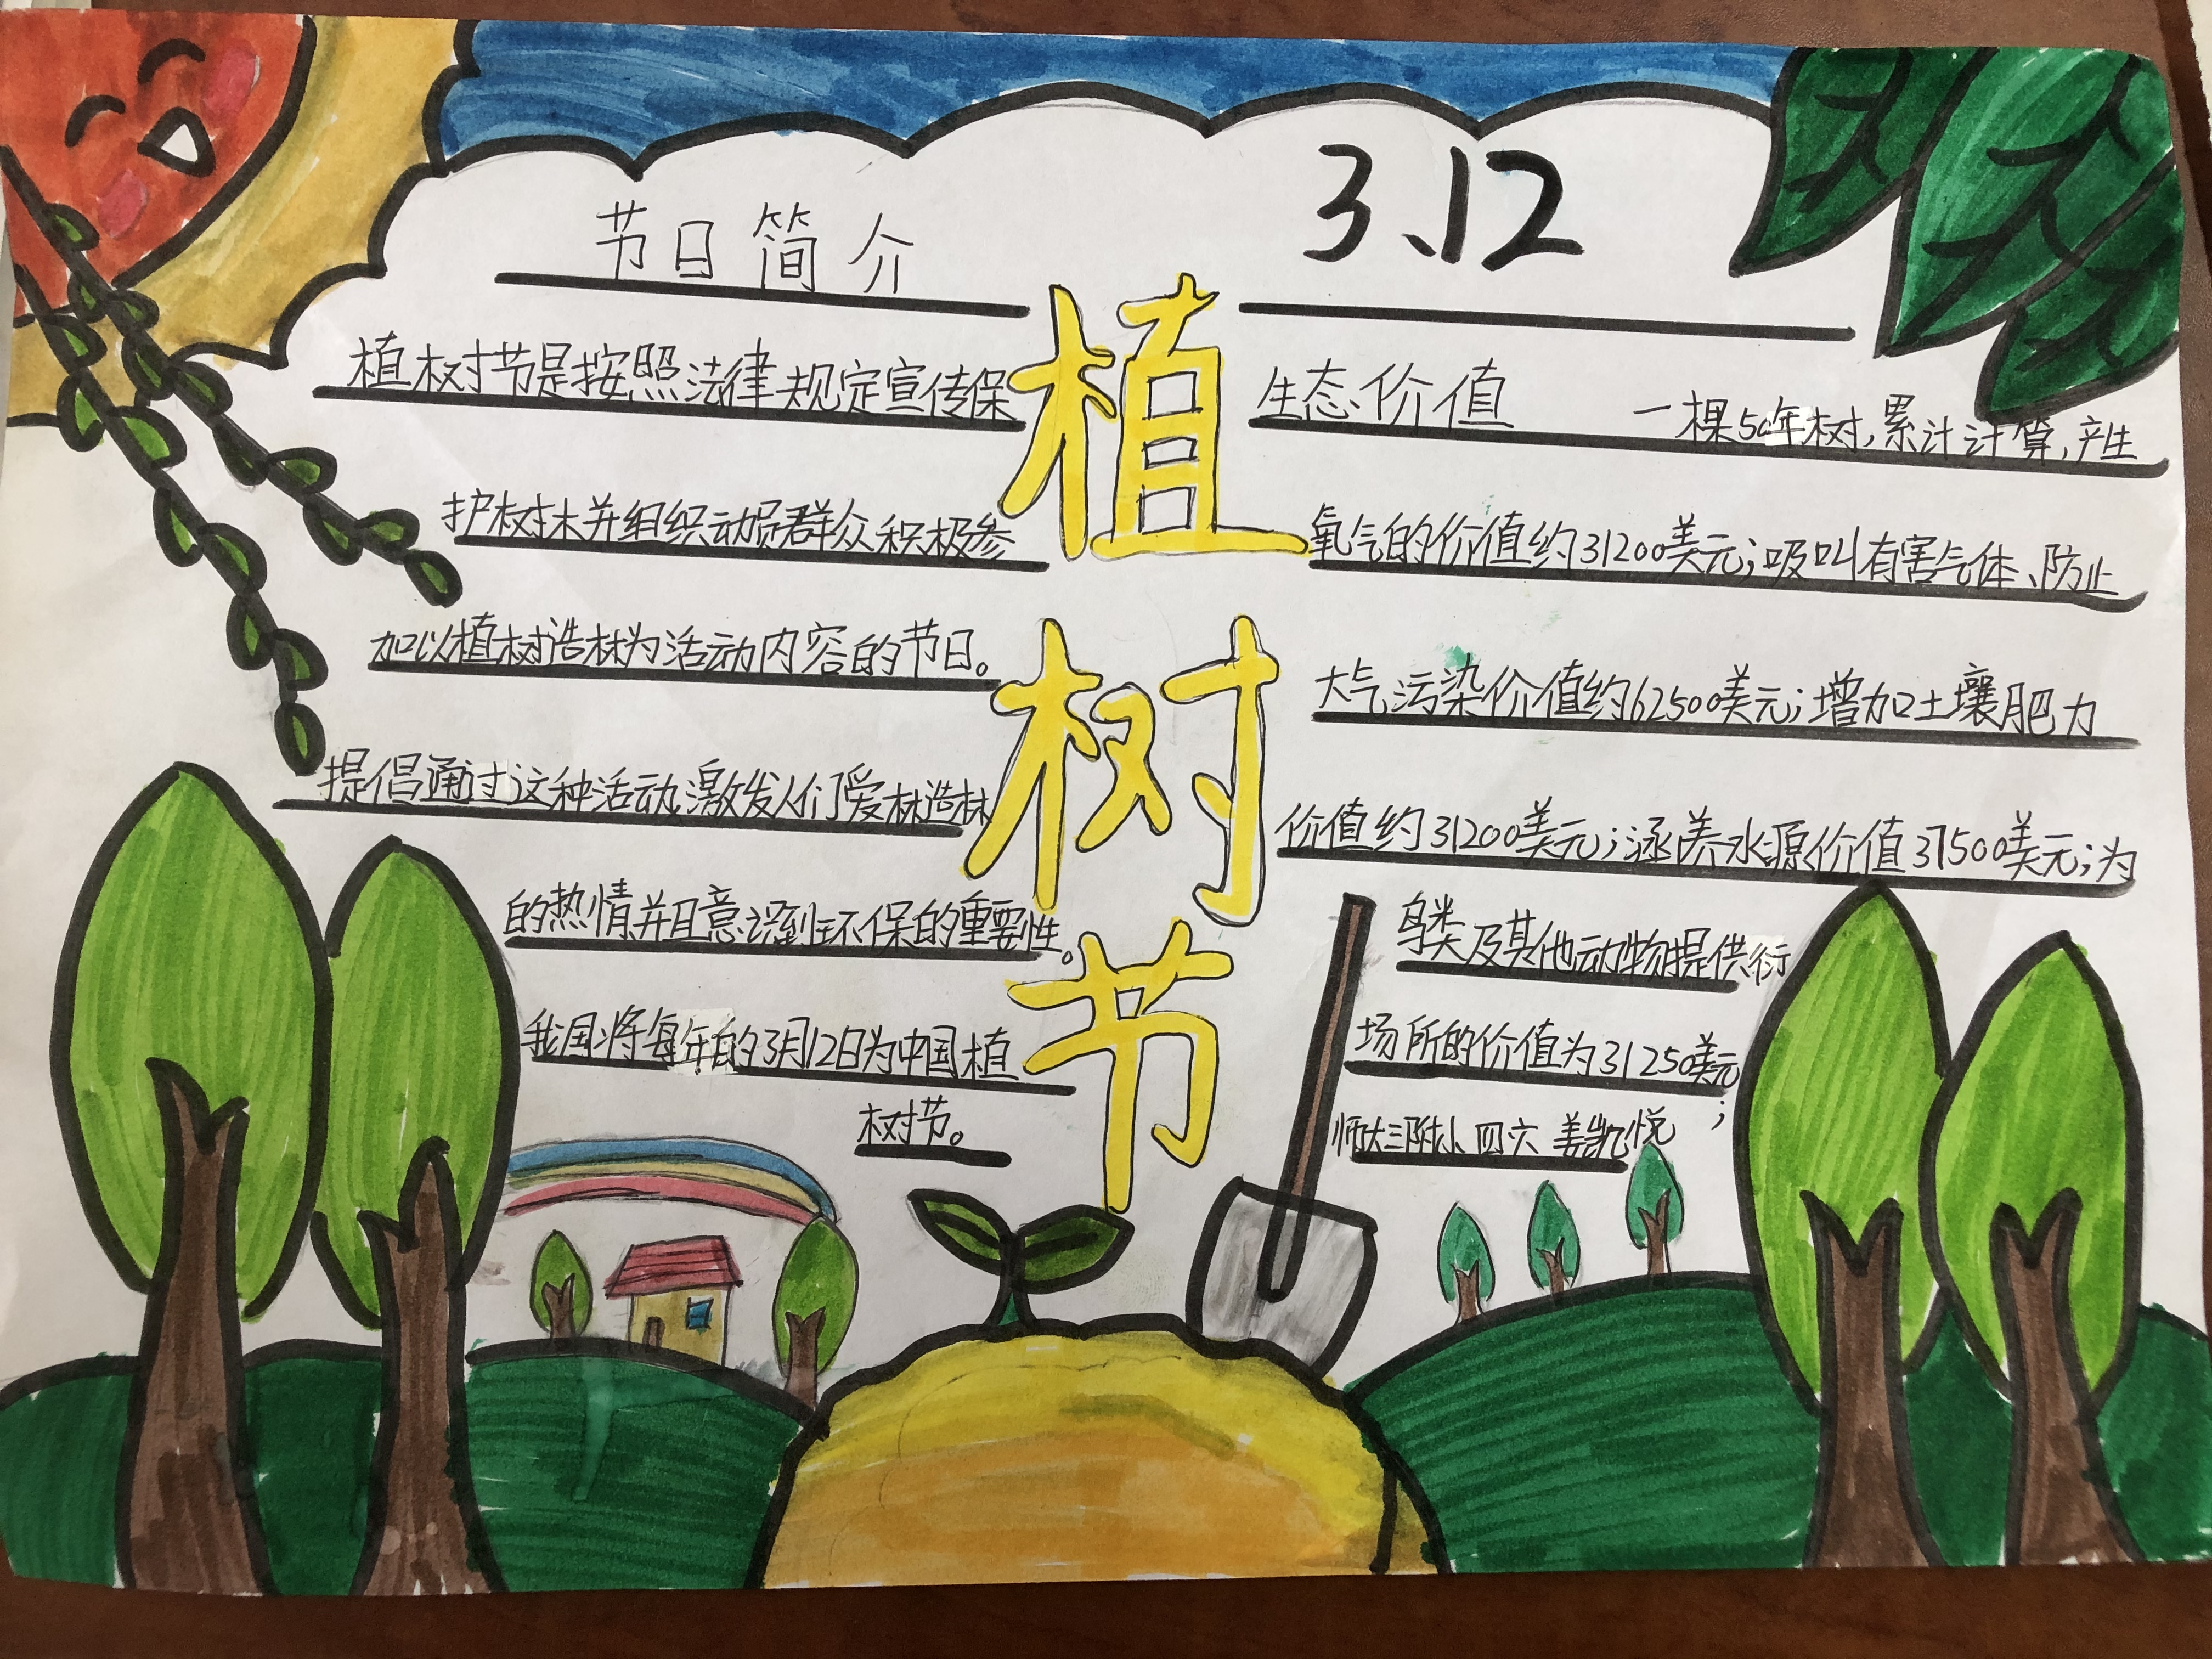 3.12
节日简介
植树节是按照法律规定宣传保
护树木并组织动员群众积极参
加以植树造林为活动内容的节日。
提倡通过这种活动,激发人们爱林造林
的热情并且意识到环保的重要性。
我国将每年的3月12日为中国植
树节。
植
树
节
生态价值 一棵50年树,累计计算,产生
氧气的价值约31200美元;吸叫有害气体、防止
大气污染价值约62500美元;增加土壤肥力
价值约31200美元;涵养水源价值37500美元;为
鸟类及其他动物提供衍
场所的价值为31250美元;
师大三附小 四六 姜凯悦